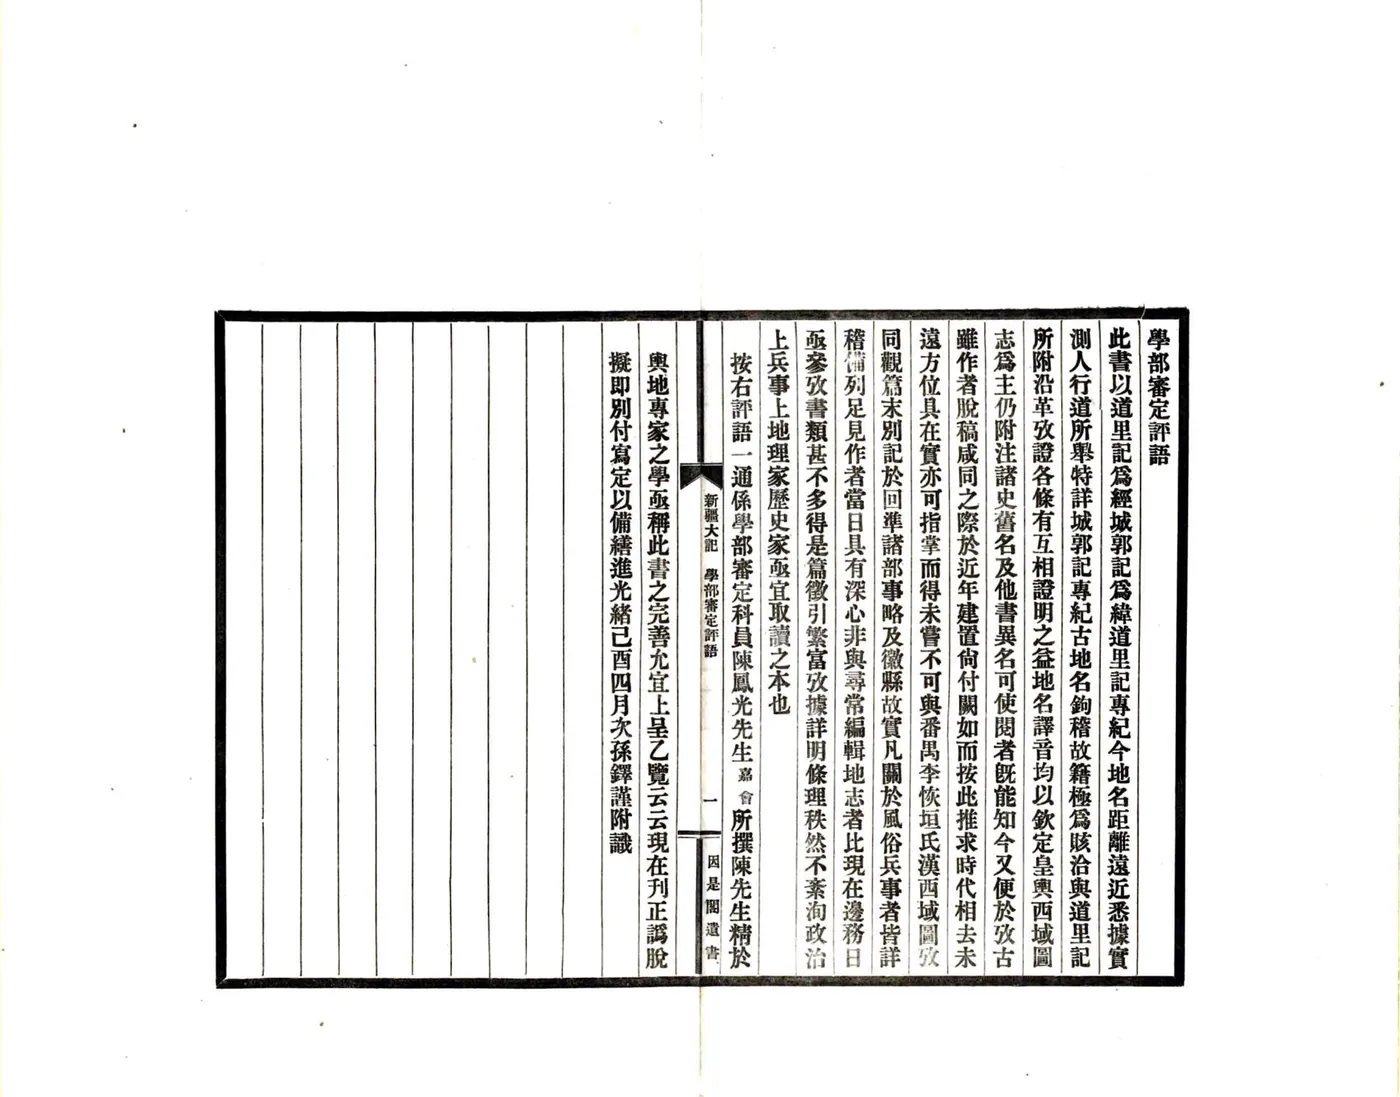 學部審定評語
此書以道里記爲經城郭記爲緯道里記專紀今地名距離遠近悉據實
測人行道所舉特詳城郭記專紀古地名鉤稽故籍極爲賅洽與道里記
所附沿革攷證各條有互相證明之益地名譯音均以欽定皇輿西域圖
志爲主仍附注諸史舊名及他書異名可使閱者旣能知今又便於攷古
雖作者脫稿咸同之際於近年建置尙付闕如而按此推求時代相去未
遠方位具在實亦可指掌而得未嘗不可與番禺李恢垣氏漢西域圖攷
同觀篇末別記於回準諸部事略及徽縣故實凡關於風俗兵事者皆詳
稽備列足見作者當日具有深心非與尋常編輯地志者比現在邊務日
亟參攷書類甚不多得是篇徵引繁富攷據詳明條理秩然不紊洵政治
上兵事上地理家歷史家亟宜取讀之本也
按右評語一通係學部審定科員陳鳳光先生嘉會所撰陳先生精於
新疆大記 學部審定評語 一 因是閣遺書
輿地專家之學亟稱此書之完善允宜上呈乙覽云云現在刊正譌脫
擬即別付寫定以備繕進光緒己酉四月次孫鐸謹附識